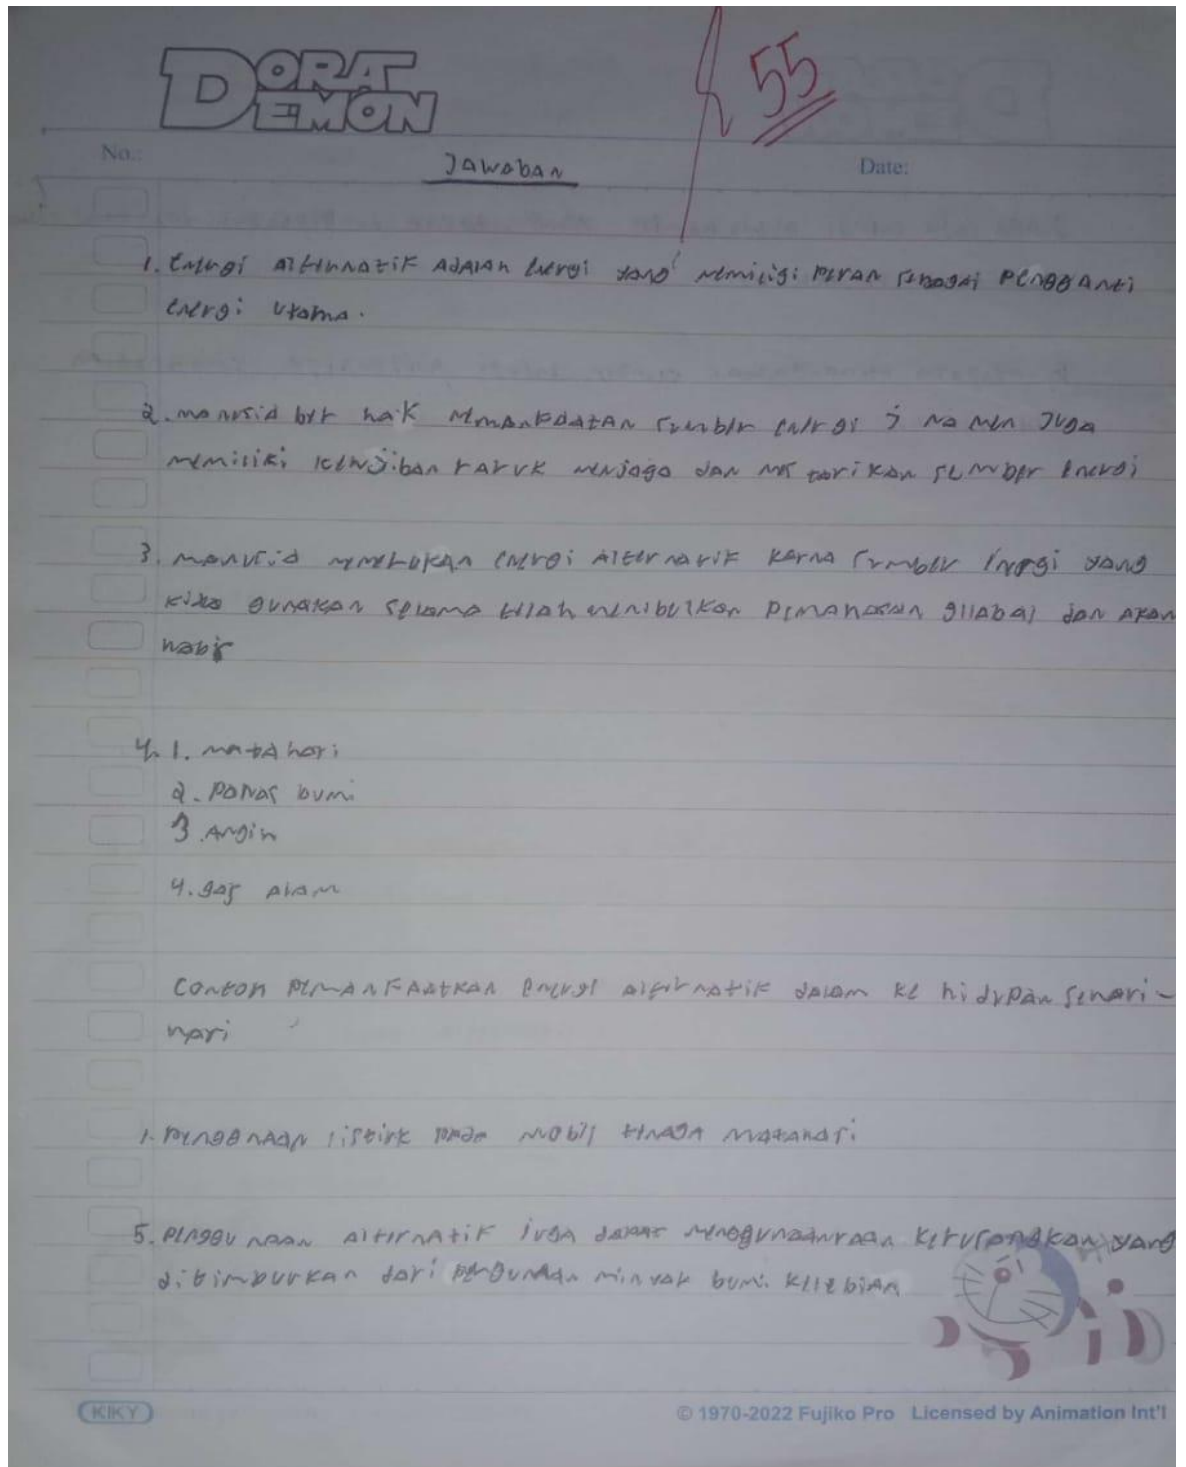 DORA
DEMON
55
No.:
Jawaban
Date:
1. Energi alternatif adalah energi yang memiligi peran sebagai pengganti
energi utama.
2. manusia ber hak memanfaatan sumber energi ; namen juga
memiliki kewajiban menjaga dan sumber energi
3. manusia memerlukan energi alternatif karna sumber energi yang
kita gunakan selama telah menibulkan pemanasan gllabal dan akan
habis
4. 1. matahari
2. Panas bumi
3. Angin
4. gas alam
Conton pemanfaatkan energi alternatif dalam ke hidupan sehari-
hari
1. penggnaan listirk mobil tenaga matahari
5. penggunaan alternatif juga dapat yang
ditimburkan dari pengunaan minyak bumi.
KIKY
© 1970-2022 Fujiko Pro Licensed by Animation Int'l